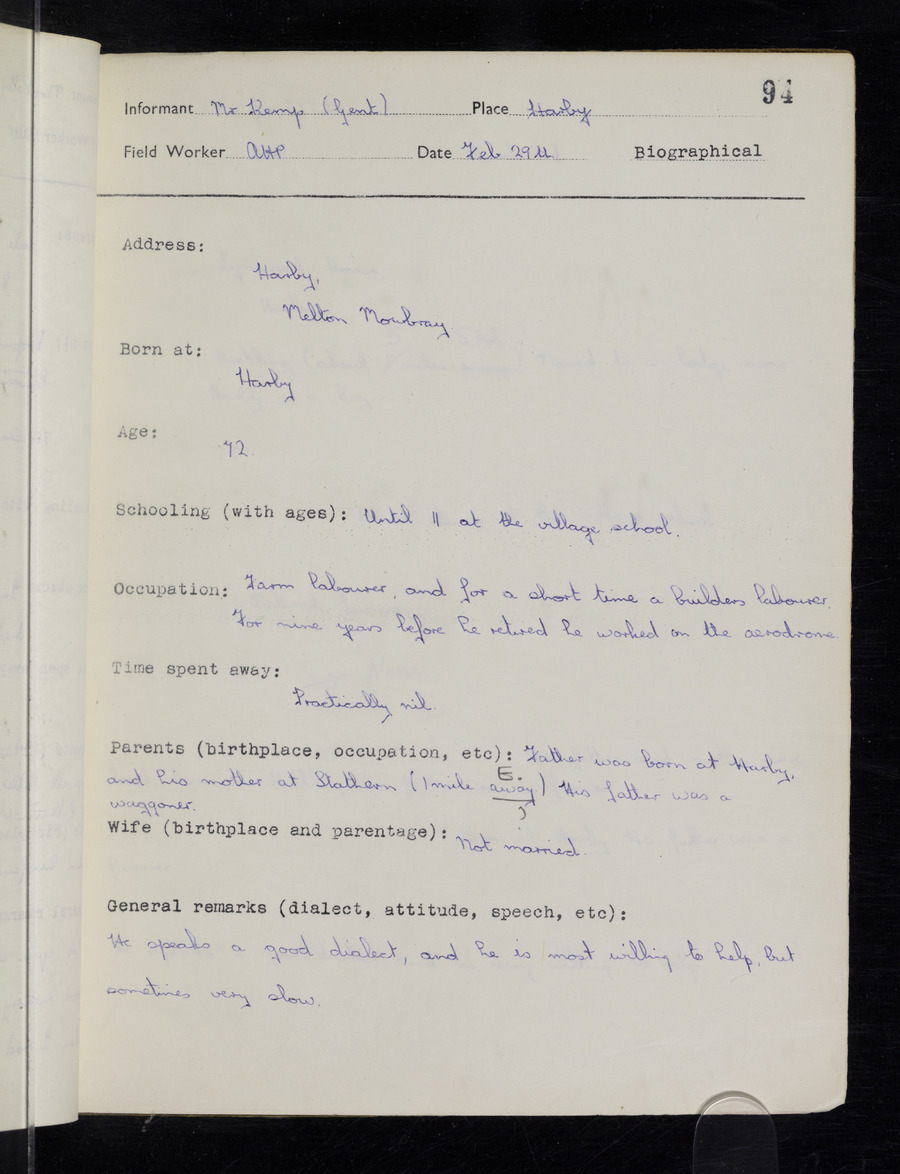 94
Informant Mr Kemp (Gent) Place Harby
Field Worker AHP Date Feb 29th Biographical
Address:
Harby,
Melton Mowbray
Born at:
Harby
Age:
72.
Schooling (with ages): Until 11 at the village school.
Occupation: Farm labourer, and for a short time a builders labourer.
For nine years before he retired he worked on the aerodrome
Time spent away:
Practically nil.
Parents (birthplace, occupation, etc): Father was born at Harby,
E.
and his mother at Stathern (1 mile away) His father was a
waggoner.
Wife (birthplace and parentage): Not married.
General remarks (dialect, attitude, speech, etc):
He speaks a good dialect, and he is most willing to help, but
sometimes very slow.